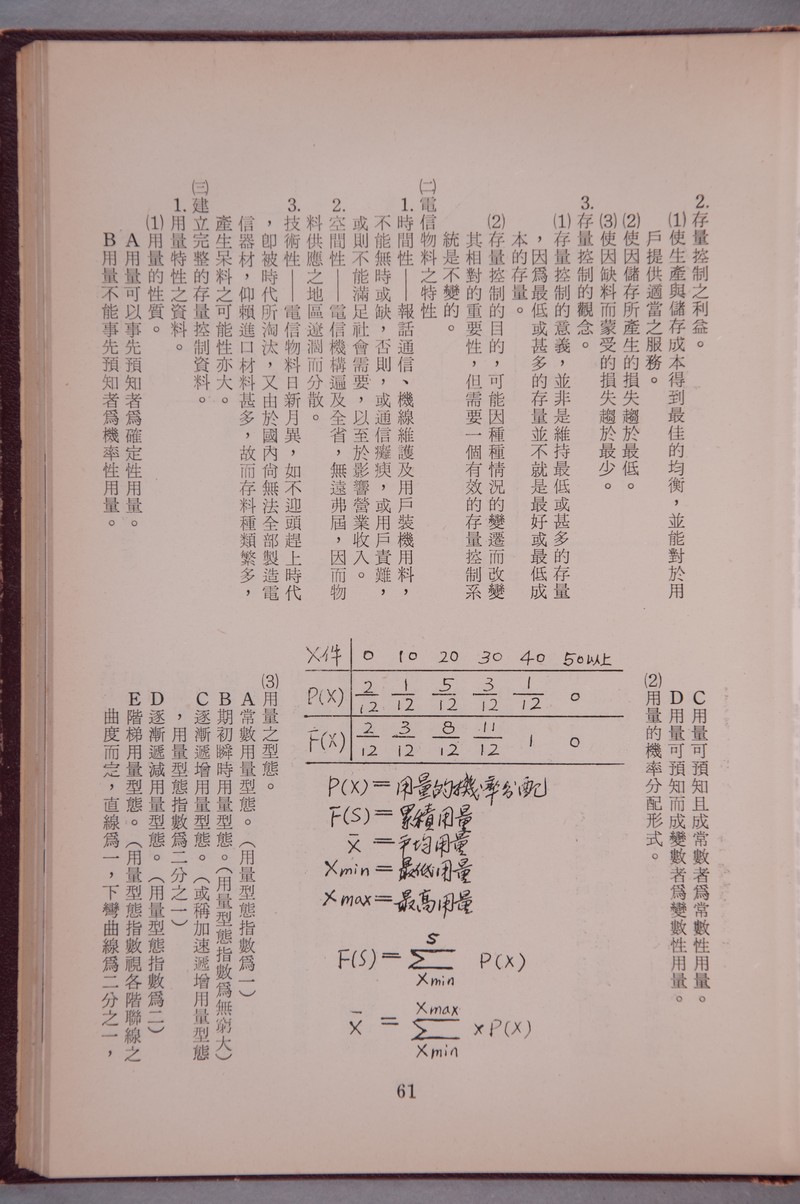 2.存量控制之利益。
(1)使生產與儲存成本得到最佳的均衡，並能對於用
戶提供適當之服務。
(2)使因儲存所產生的損失趨於最低。
(3)使因缺料而蒙受的損失趨於最少。
3.存量控制的觀念。
(1)存量控制的意義，並非是維持最低或甚多的存量
，因爲最低或甚多的存量並不就是最好或最低成
本的存量。
(2)存量控制的目的，可能因種種情況的變遷而改變
其相對的重要性，但需要一個有效的存量控制系
統是不變的。
㈡電信物料之特性
1.時間性——報話通信、機線維護及用戶裝機用料，
不能無時或缺，否則，或通信癱瘓，或用戶責難，
或則不能滿足社會需要，以至於影響營業收入。
2.空間性——電信機構遍及全省，無遠弗屆，因而物
料供應之地區遼濶而分散。
3.技術性——電信物料日新月異，如不迎頭趕上時代
，卽被時代所淘汰，又由於國內尙無法全部製造電
信器材，仰賴進口材料甚多，故而存料種類繁多，
產生呆料之可能性亦大。
㈢建立完整的存量控制資料。
1.用量特性之資料。
(1)用量的性質。
A用量可以事先預知者爲確定性用量。
B用量不能事先預知者爲機率性用量。
C用量可預知且成常數者爲常數性用量。
D用量可預知而成變數者爲變數性用量。
(2)用量的機率分配形式。
X件 0 10 20 30 40 50以上
P(X) 2/12 1/12 5/12 3/12 1/12 0
F(X) 2/12 3/12 8/12 11/12 1 0
P(X)=用量的機率分配
F(S)=累積用量
X̄=平均用量
Xmin=最低用量
Xmax=最高用量
F(S)=∑ S Xmin P(X)
X̄=∑ Xmax Xmin xP(X)
(3)用量之型態。
A常數用量型態。（用量型態指數爲一）
B期初瞬時用量型態。（用量型態指數爲無窮大）
C逐漸遞增用量型態。（或稱加速遞增用量型態
，用量型態指數爲二分之一）
D逐漸遞減用量型態。（用量型態指數爲二）
E階梯用量型態。（用量型態指數視各階聯線之
曲度而定，直線爲一，下彎曲線爲二分之一，
61